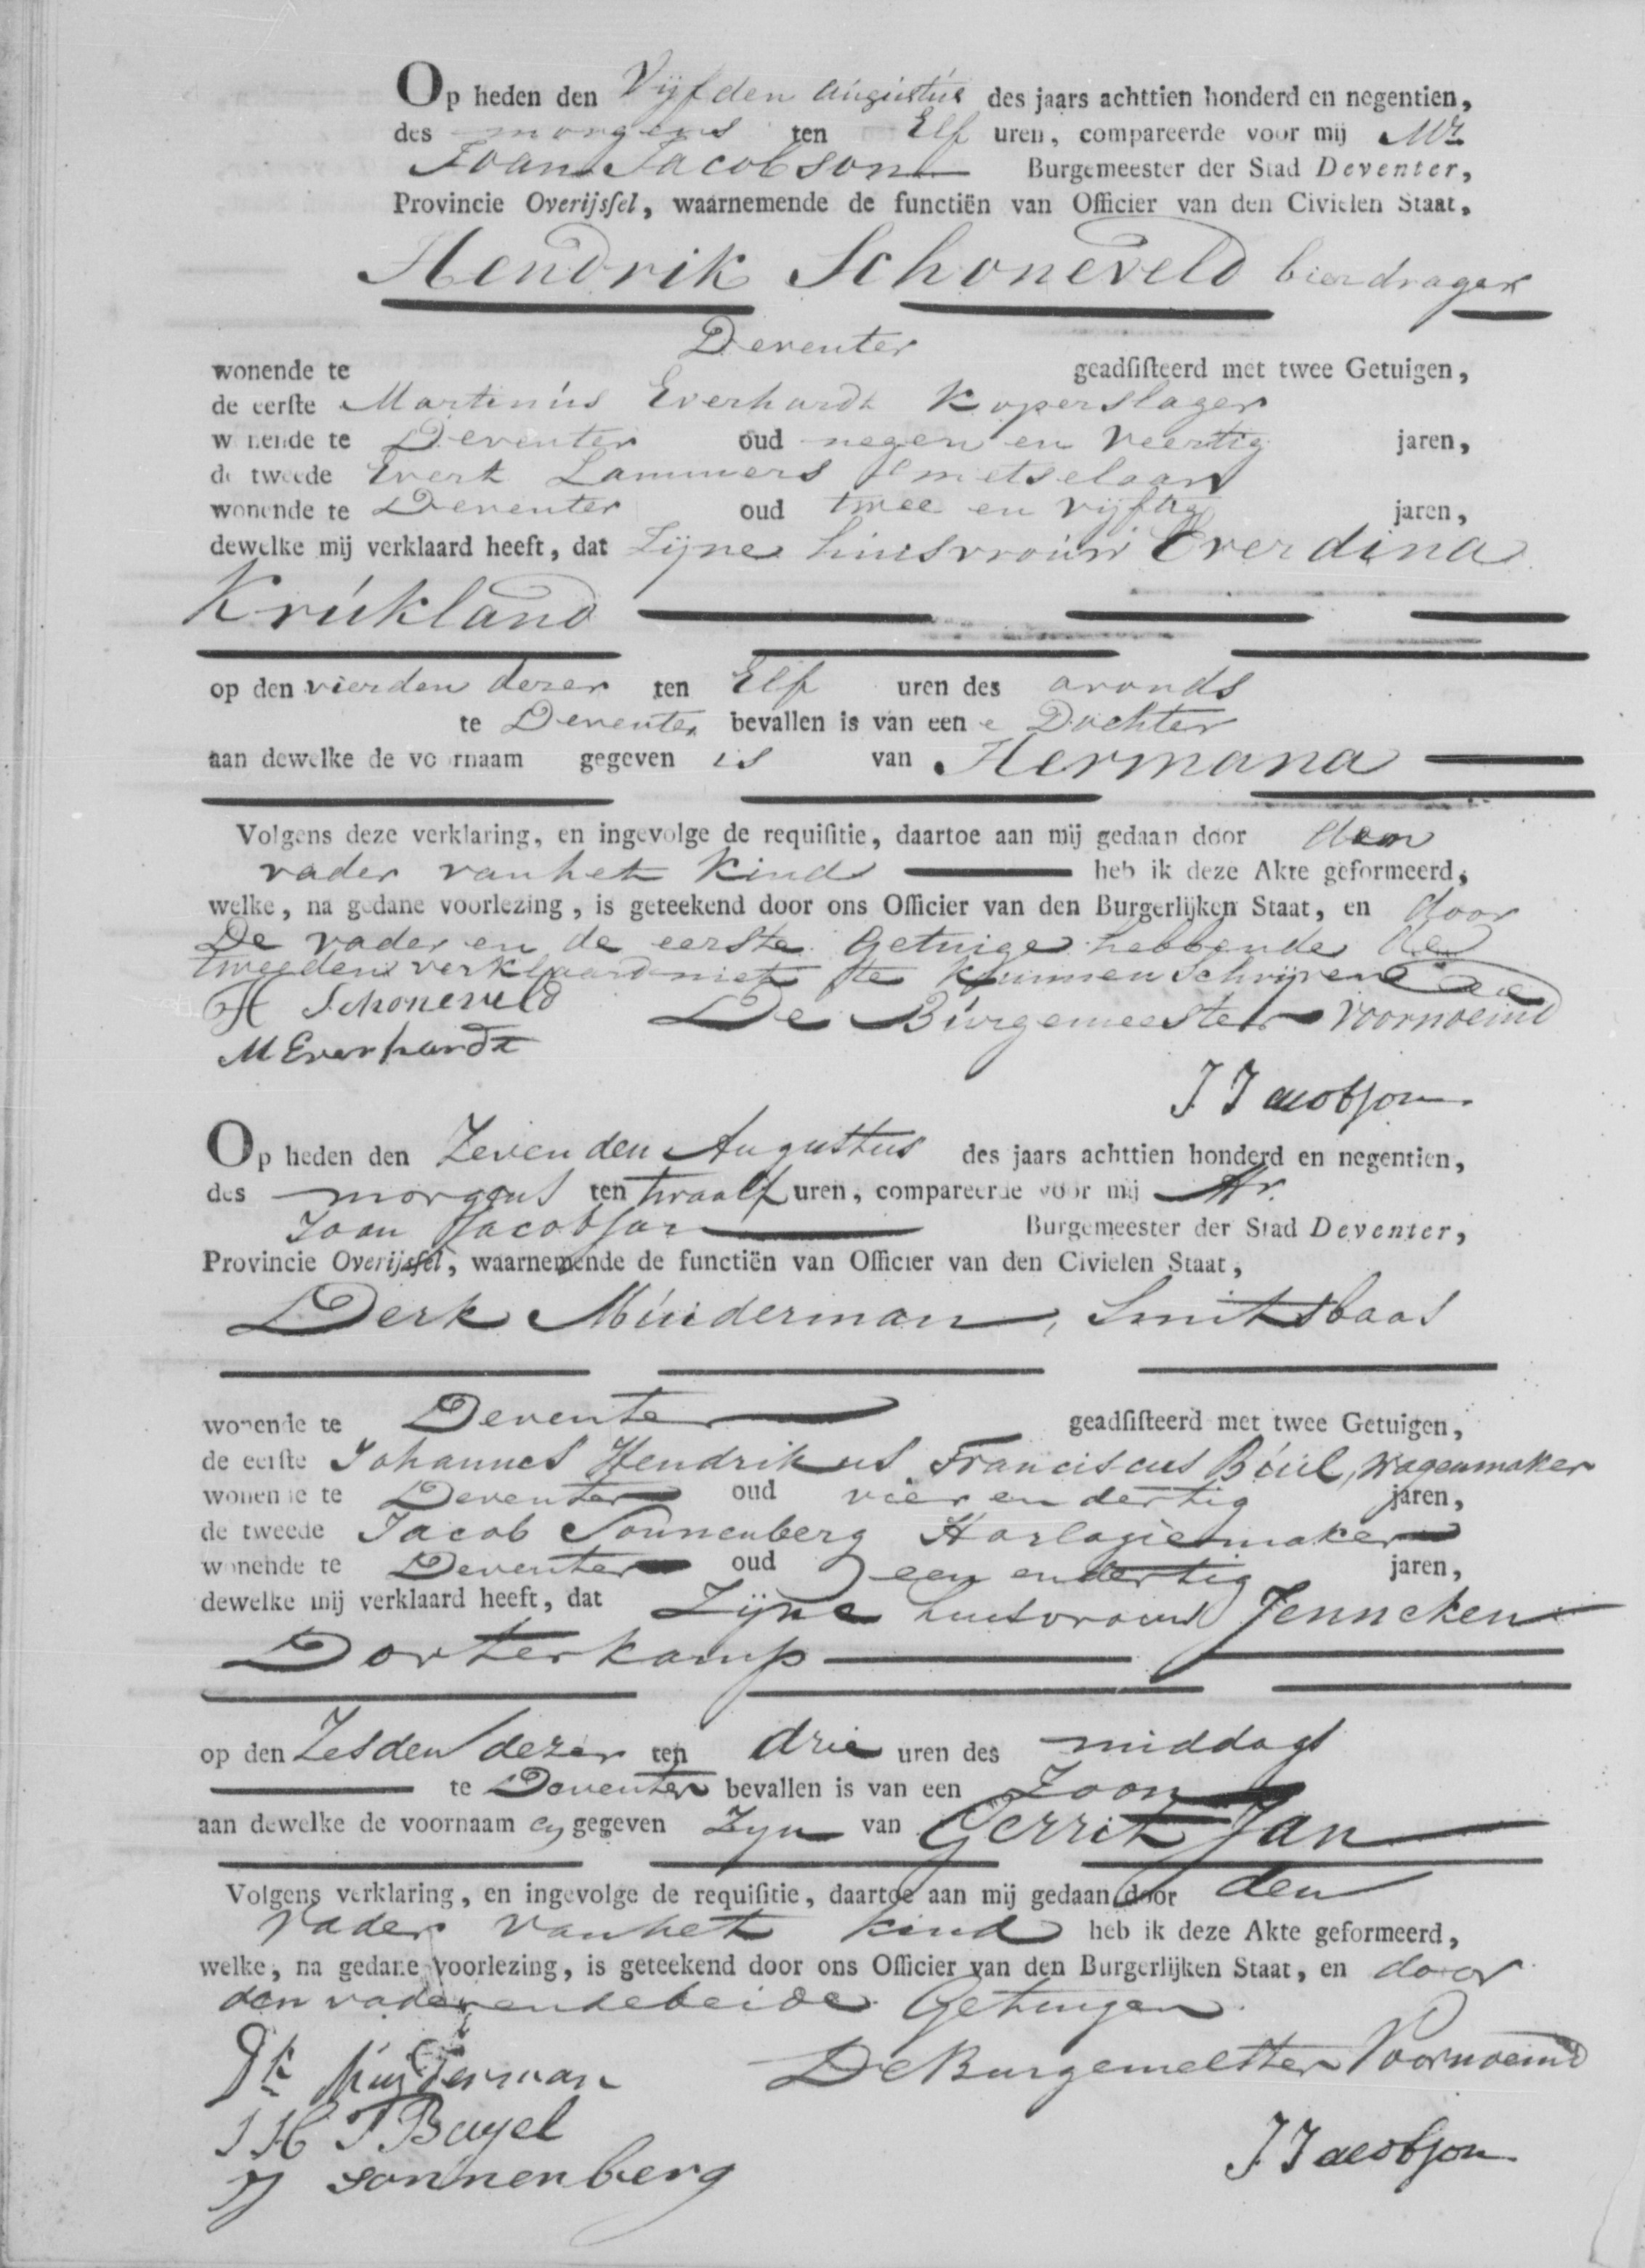 Op heden den Vijfden augustus des jaars achttien honderd en negentien,
des morgens ten Elf uren, compareerde voor mij Mr
Joan Jacobson Burgemeester der Stad Deventer,
Provincie Overijsſel, waarnemende de functiën van Officier van den Civielen Staat,
Hendrik Schoneveld bierdrager
Deventer
wonende te geadſiſteerd met twee Getuigen,
de eerſte Martinus Everhardt Koperslager
wonende te Deventer oud negen en veertig jaren,
de tweede Evert Lammers metselaar
wonende te Deventer oud twee en vijftig jaren,
dewelke mij verklaard heeft, dat Zijne huisvrouw Everdina
Krukland
op den vierden dezer ten Elf uren des avonds
te Deventer bevallen is van een e Dochter
aan dewelke de voornaam gegeven is van Hermana
Volgens deze verklaring, en ingevolge de requiſitie, daartoe aan mij gedaan door den
vader van het Kind heb ik deze Akte geformeerd,
welke, na gedane voorlezing, is geteekend door ons Officier van den Burgerlijken Staat, en door
De vader en de eerste Getuige hebbende de
tweeden verklaard niet te kunnen Schrijven
H Schoneveld De Burgemeester voornoemd
M Everhardt
J Jacobson
Op heden den Zevenden Augustus des jaars achttien honderd en negentien,
des morgens ten twaalf uren, compareerde voor mij Mr.
Joan Jacobson Burgemeester der Stad Deventer,
Provincie Overijsſel, waarnemende de functiën van Officier van den Civielen Staat,
Derk Muiderman, Smitsbaas
wonende te Deventer geadſiſteerd met twee Getuigen,
de eerſte Johannes Hendrikus Franciscus Buil, Wagenmaker
wonende te Deventer oud vier en dertig jaren,
de tweede Jacob Sonnenberg Horlogiemaker
wonende te Deventer oud een en dertig jaren,
dewelke mij verklaard heeft, dat Zijne huisvrouw Jenneken
Dorterkamp
op den Zesden dezer ten drie uren des middags
te Deventer bevallen is van een Zoon
aan dewelke de voornaam en gegeven Zyn van Gerrit Jan
Volgens verklaring, en ingevolge de requiſitie, daartoe aan mij gedaan door den
Vader van het kind heb ik deze Akte geformeerd,
welke, na gedane voorlezing, is geteekend door ons Officier van den Burgerlijken Staat, en door
den vader en de beide Getuigen
Dk Muiderman De Burgemeester Voornoemd
J H F Buyel
J Sonnenberg J Jacobson